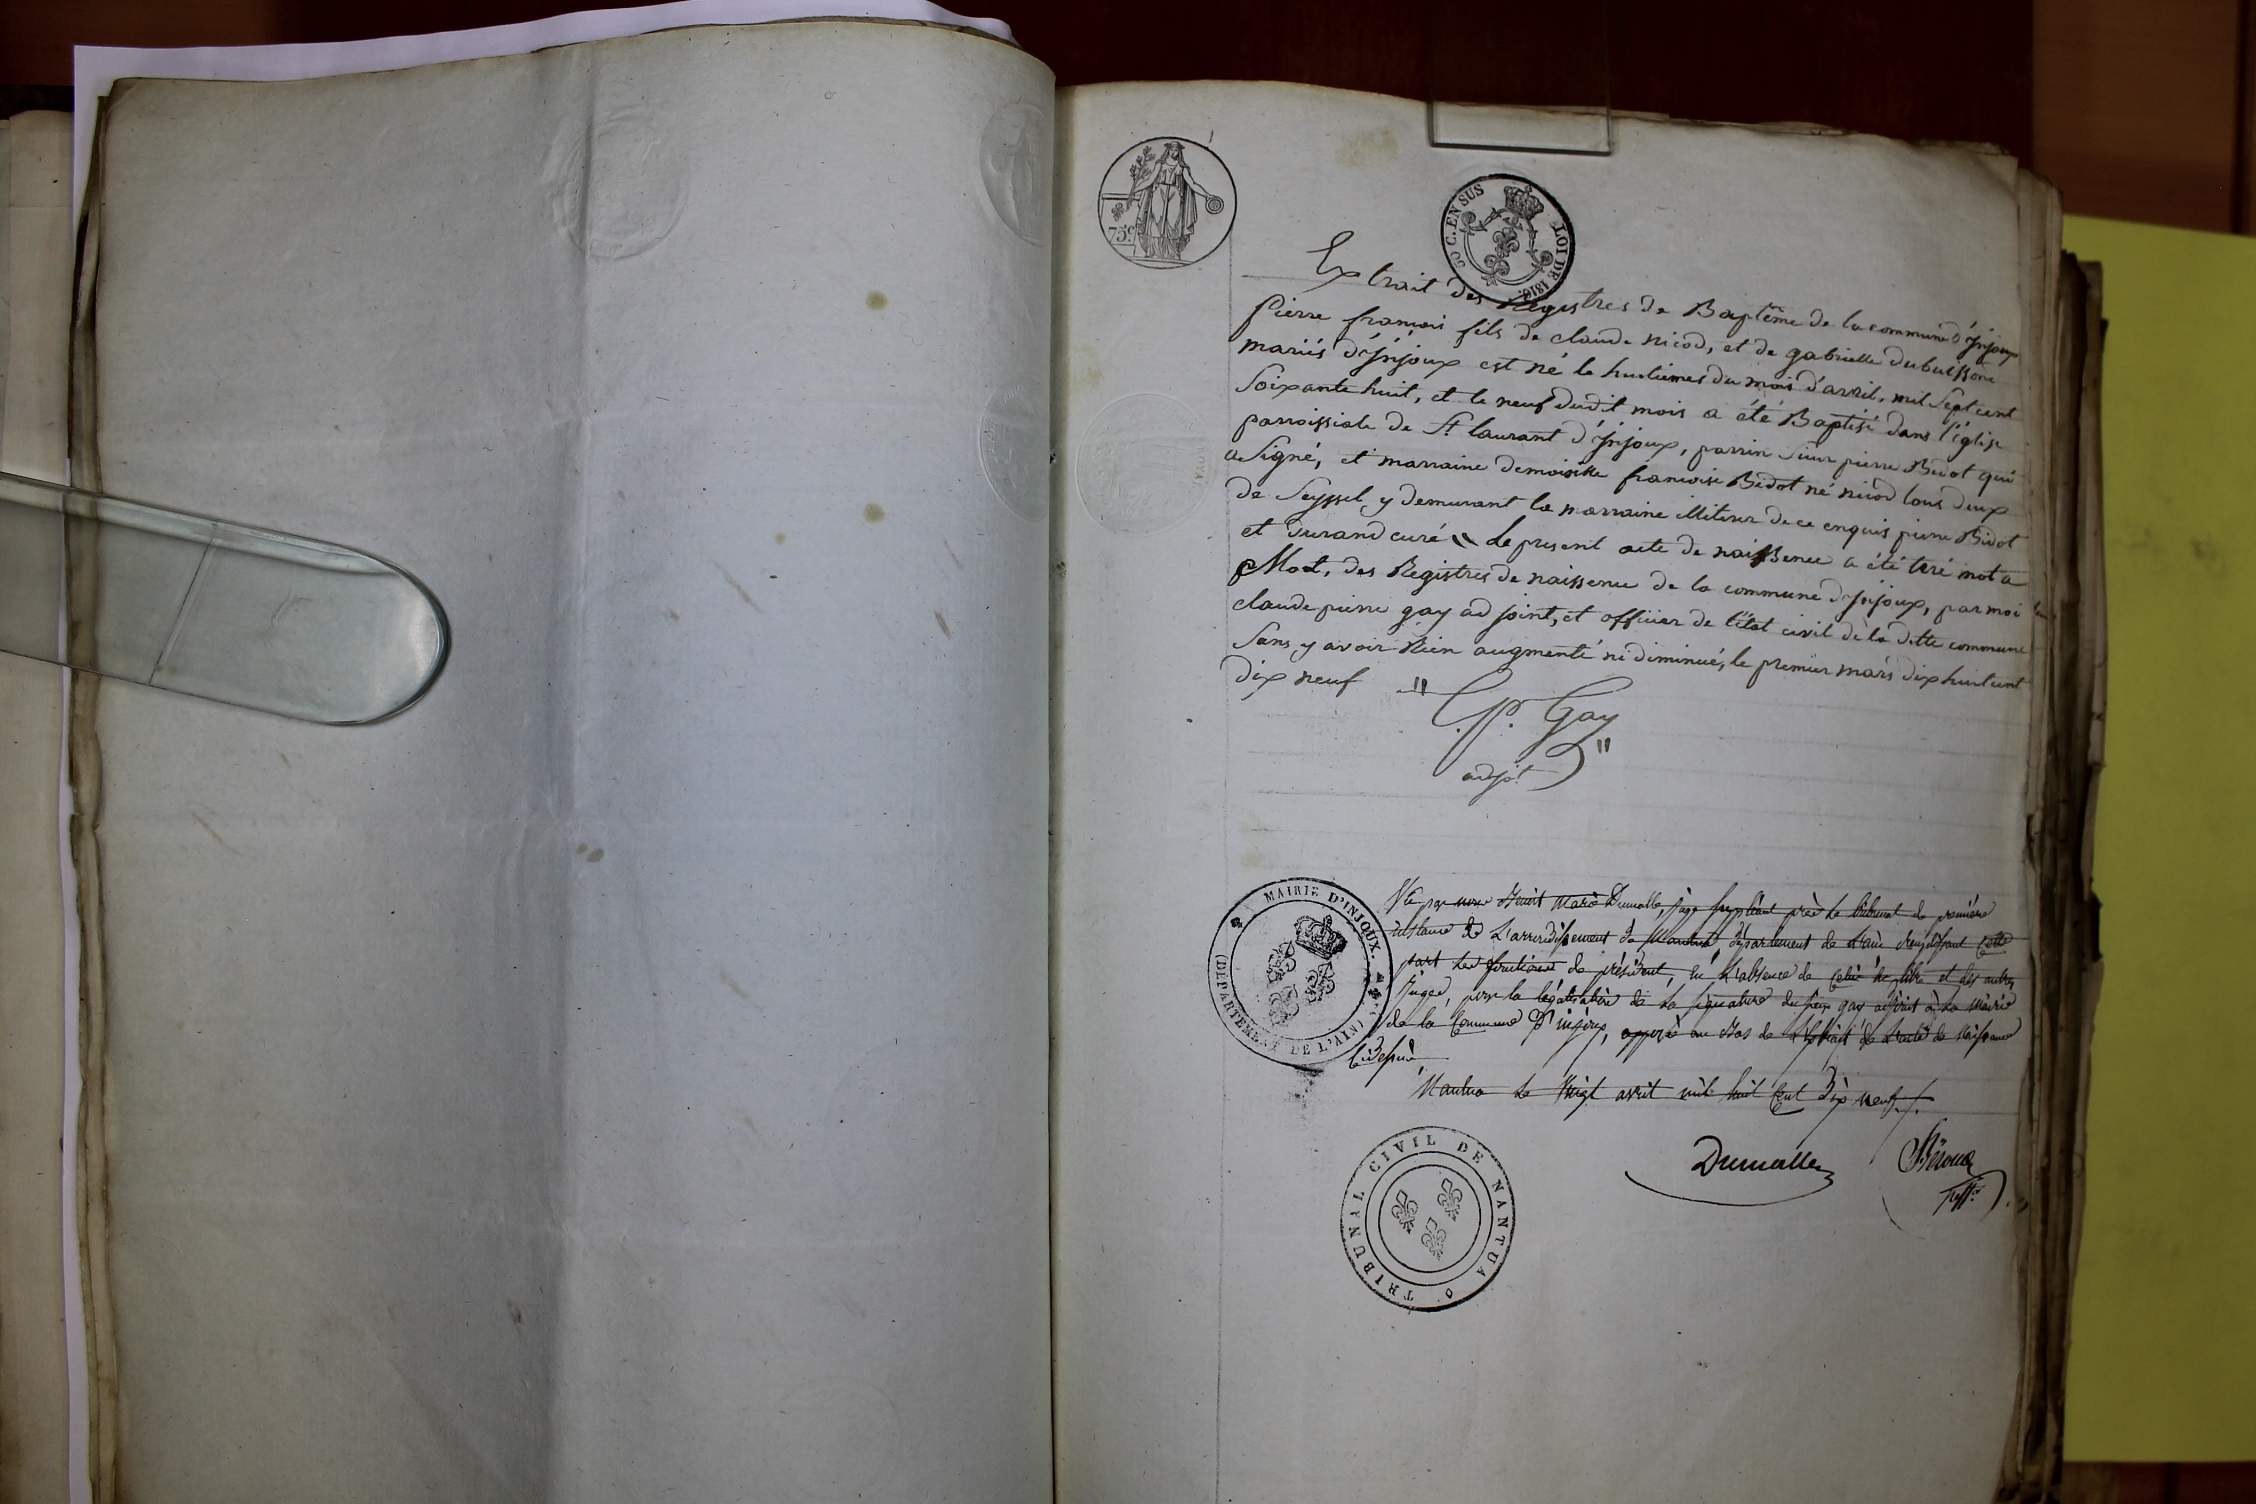 75.c
50 C. EN SUS LOI DE 1816.
Extrait des Registres de Baptême de la commune d'Injoux
pierre françois fils de claude nicod, et de gabrielle dubuisson
mariés d'Injoux est né le huitiemes du mois d'avril, mil Sept cent
Soixante huit, et le neuf dudit mois a été Baptisé dans l'église
parroissiale de St laurant d'Injoux, parrin Sieur pierre Bidot qui
a Signé, et marraine demoiselle francoise Bidot né nicod tous deux
de Seyssel y demurant la marraine illiterer de ce enquis pierre Bidot
et durand curé // Le present acte de naissence a été tiré mot a
Mot, des Registres de naissence de la commune d'Injoux, par moi
claude pierre gay adjoint, et officier de l'état civil de la ditte commune
Sans y avoir Rien augmenté ni diminué, le premier mars dix huit cent
dix neuf "
C.P. Gay "
adjot
MAIRIE D'INJOUX.
(DÉPARTEMENT DE L'AIN)
Vu par nous Benoit Marie Dumolle, juge suppléant près le tribunal de première
instance de L'arrondissement de Nantua, département de L'ain remplissant cette
part les fonctions de président, en L'absence de celui de titre et des autres
Juges, pour la légalisation de la signature du sieur gay adjoint à la Mairie
de la Commune D'injoux, apposée au Bas de L'Extrait de L'acte de Naissance
Cidessus
Nantua Le Vingt avril mil huit Cent Dix neuf./.
TRIBUNAL CIVIL DE NANTUA